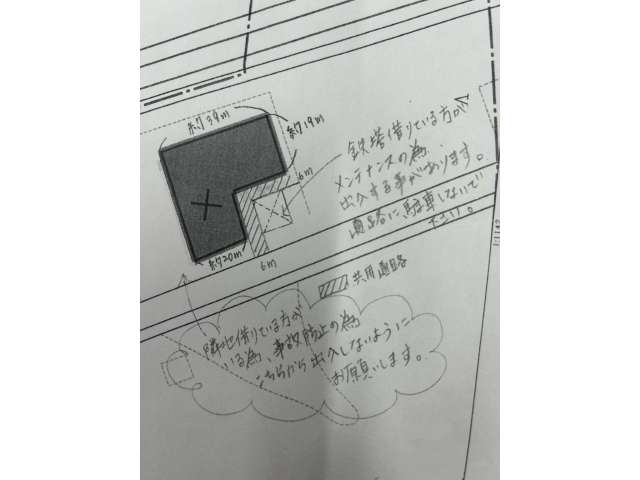 約39m
約19m
6m
約20m
6m
鉄塔借りている方が
メンテナンスの為
出入する事があります。
通路に駐車しないで
下さい。
共用通路
隣地借りている方が
いる為、事故防止の為
こちらから出入しないように
お願いします。